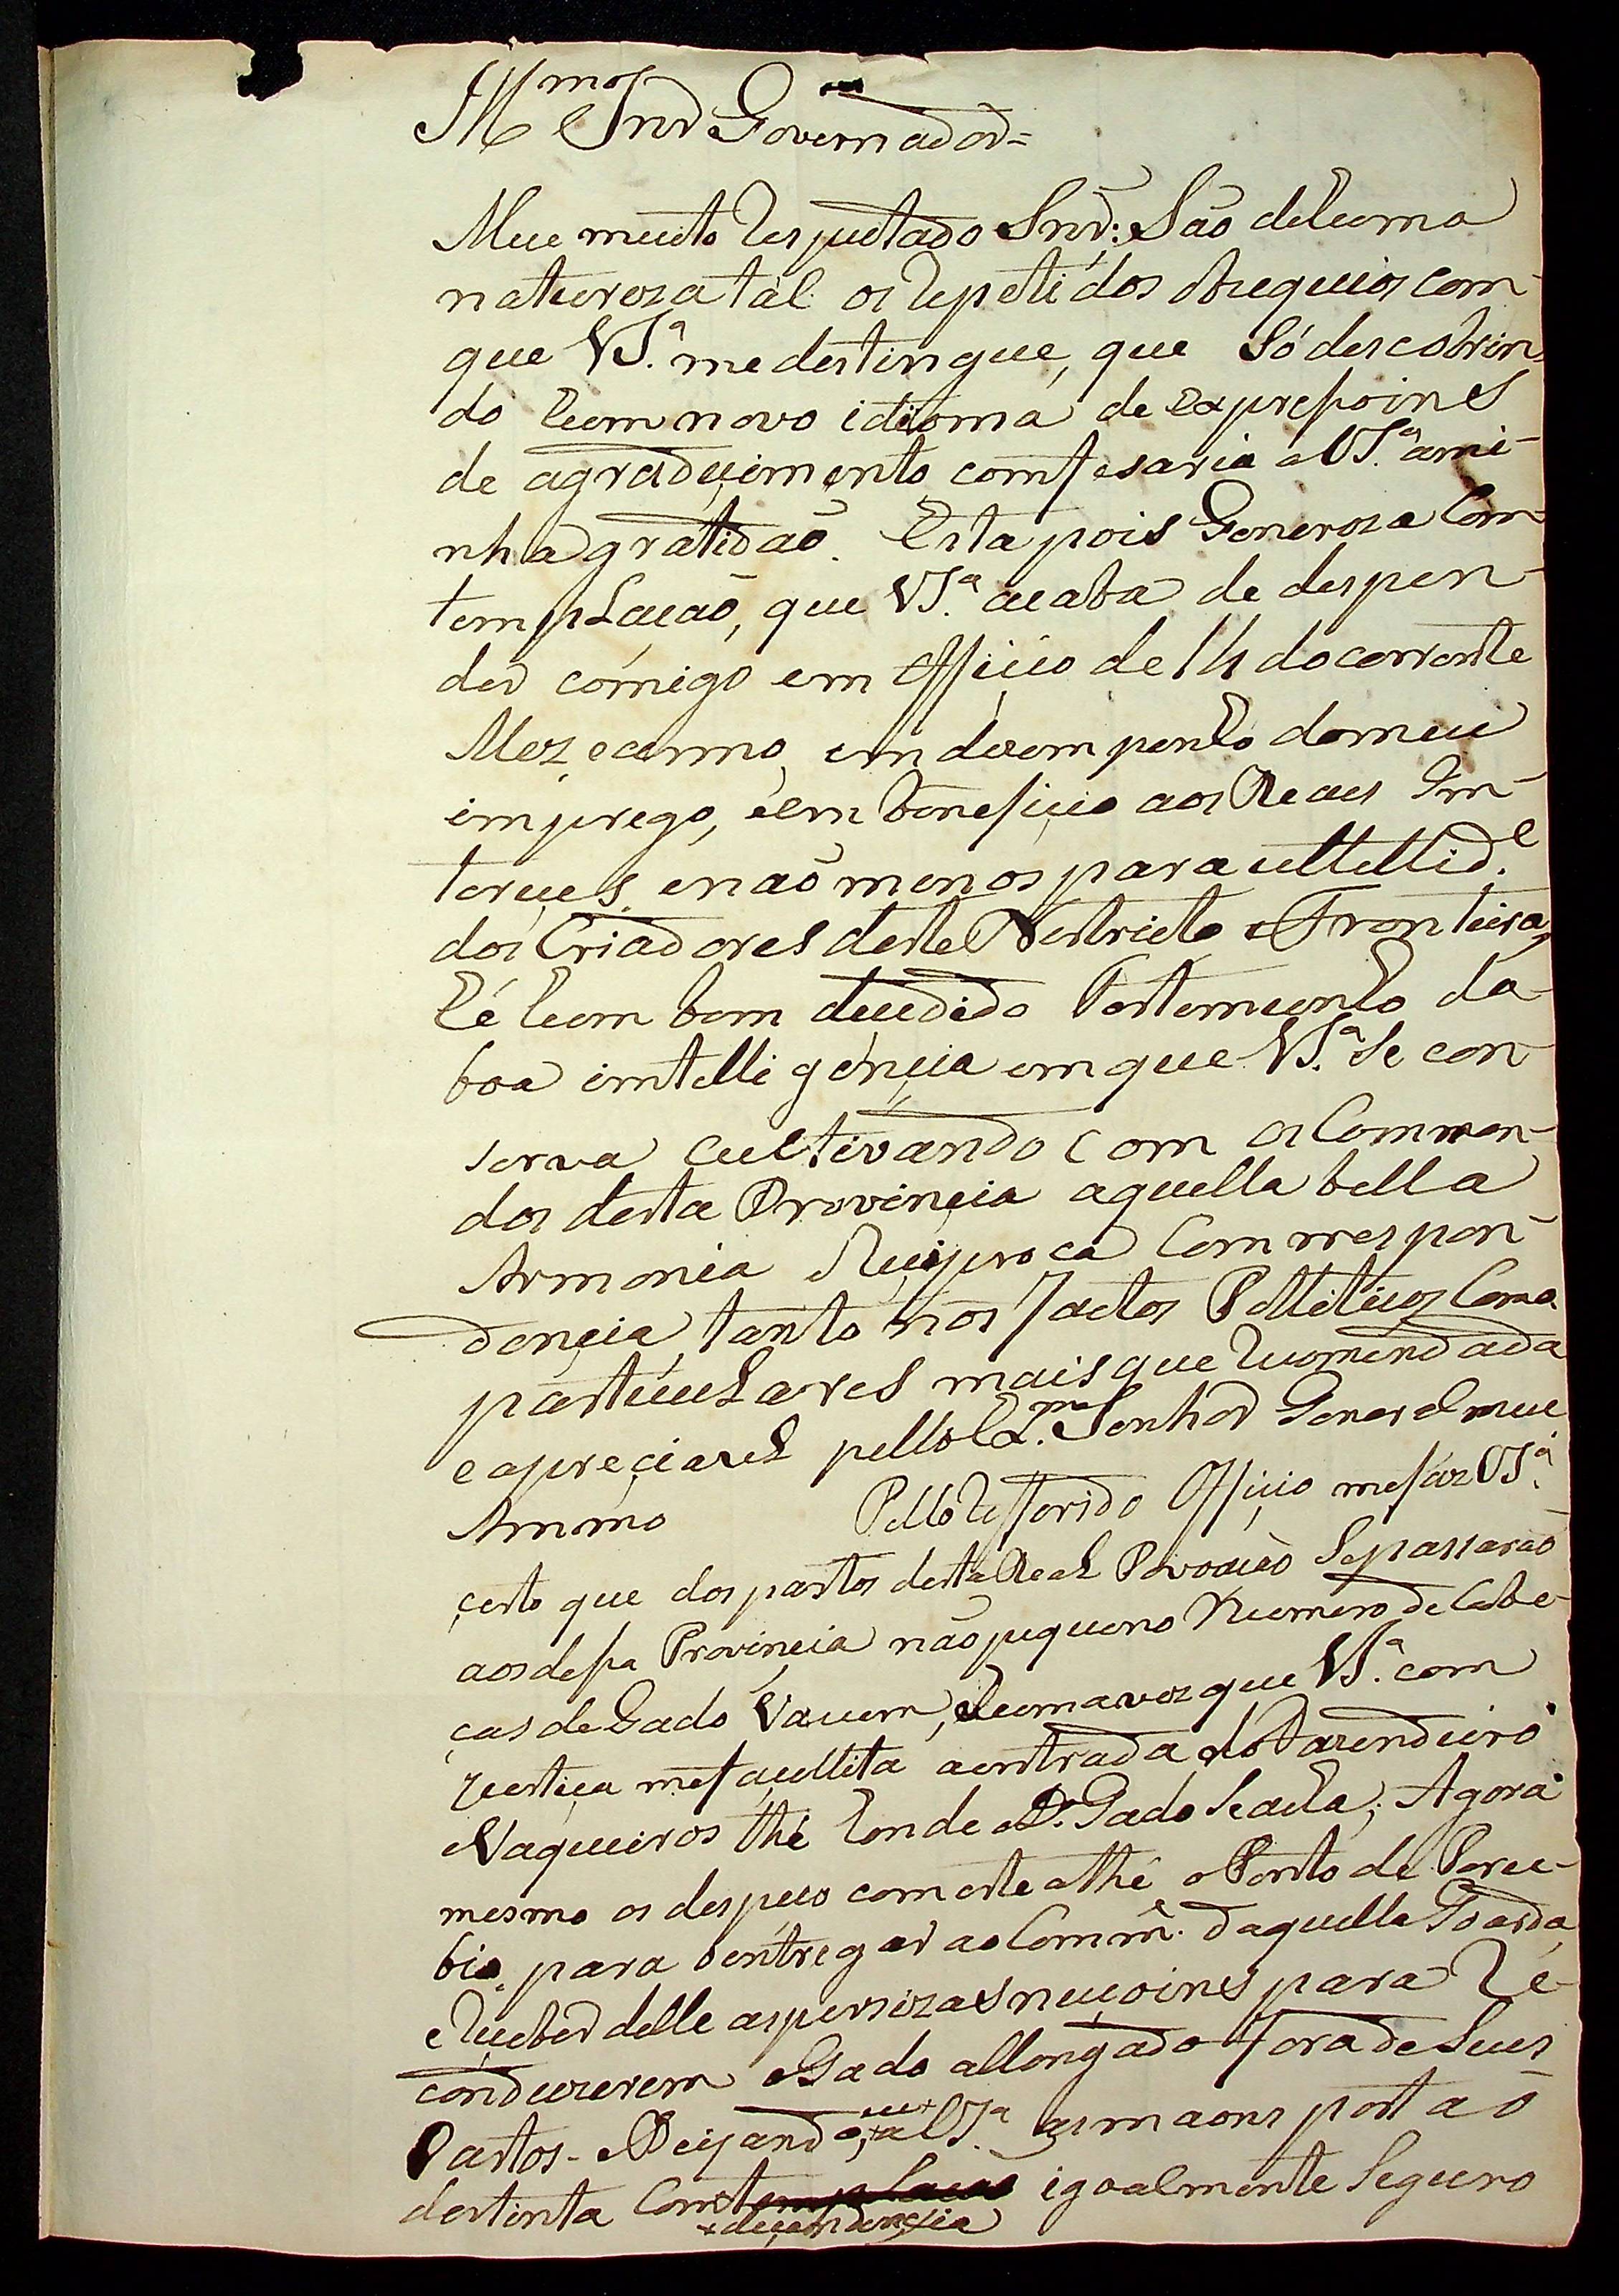 Illmo Snr Governador=
Meu muito Respeitado Snr: São de huma
natureza tal os Repetidos obzequios com-
que VSª. me destingue, que Só descobrin
do hum novo idioma de expreçoins
de agradeçimento comfesaria a VSª. ami-
nha gratidaõ. Esta pois Generoza Com-
templacaõ, que VSª. acaba de despen-
der cómigo em Officio de 14 do corrente
Mez, e anno, em dezempenho domeu
imprego, e em beneficio aos Reaes Im-
terces, e naõ menos para a utellid.e
dos Criadores deste Destricto e Fronteira,
hé hum bem decedido Testemunho da-
boa imtelligençia em que VSª. Se con-
serva cultivando com os Comman-
dos desta Provinçia aquella bella
Armonia Reçiproca Comrrespon-
dençia, tanto nos factos Polliticos Como
particulares mais que Recomendada
e apreçiavel pello Ex.mo Senhor General meu
Ammo            Pello Refferido Officio mefaz VSª.
çerto que dos pastos desta Real Povoaçaõ Sepassaraõ
aos dessa Provinçia não pequeno Numero de Cabe-
ças de Gado Vacum, e huma vez que VSª. com
justiça mefaçellita aentrada do Fazendeiro
e Vaqueiros thé honde o D.º Gado Seacha; Agora
mesmo os despeco com este athé o Ponto de Paru-
bio, para o entregar ao Comm.e daquella Goarda,
e Reçeber delle as persizas neçoins para Ré-
conduzerem o Gado allongado fora de Seus
Pastos - Beijando, eu + a VSª. as maons por taõ
destinta Contemplacaõ igoalmente Seguro
+ deçendençia